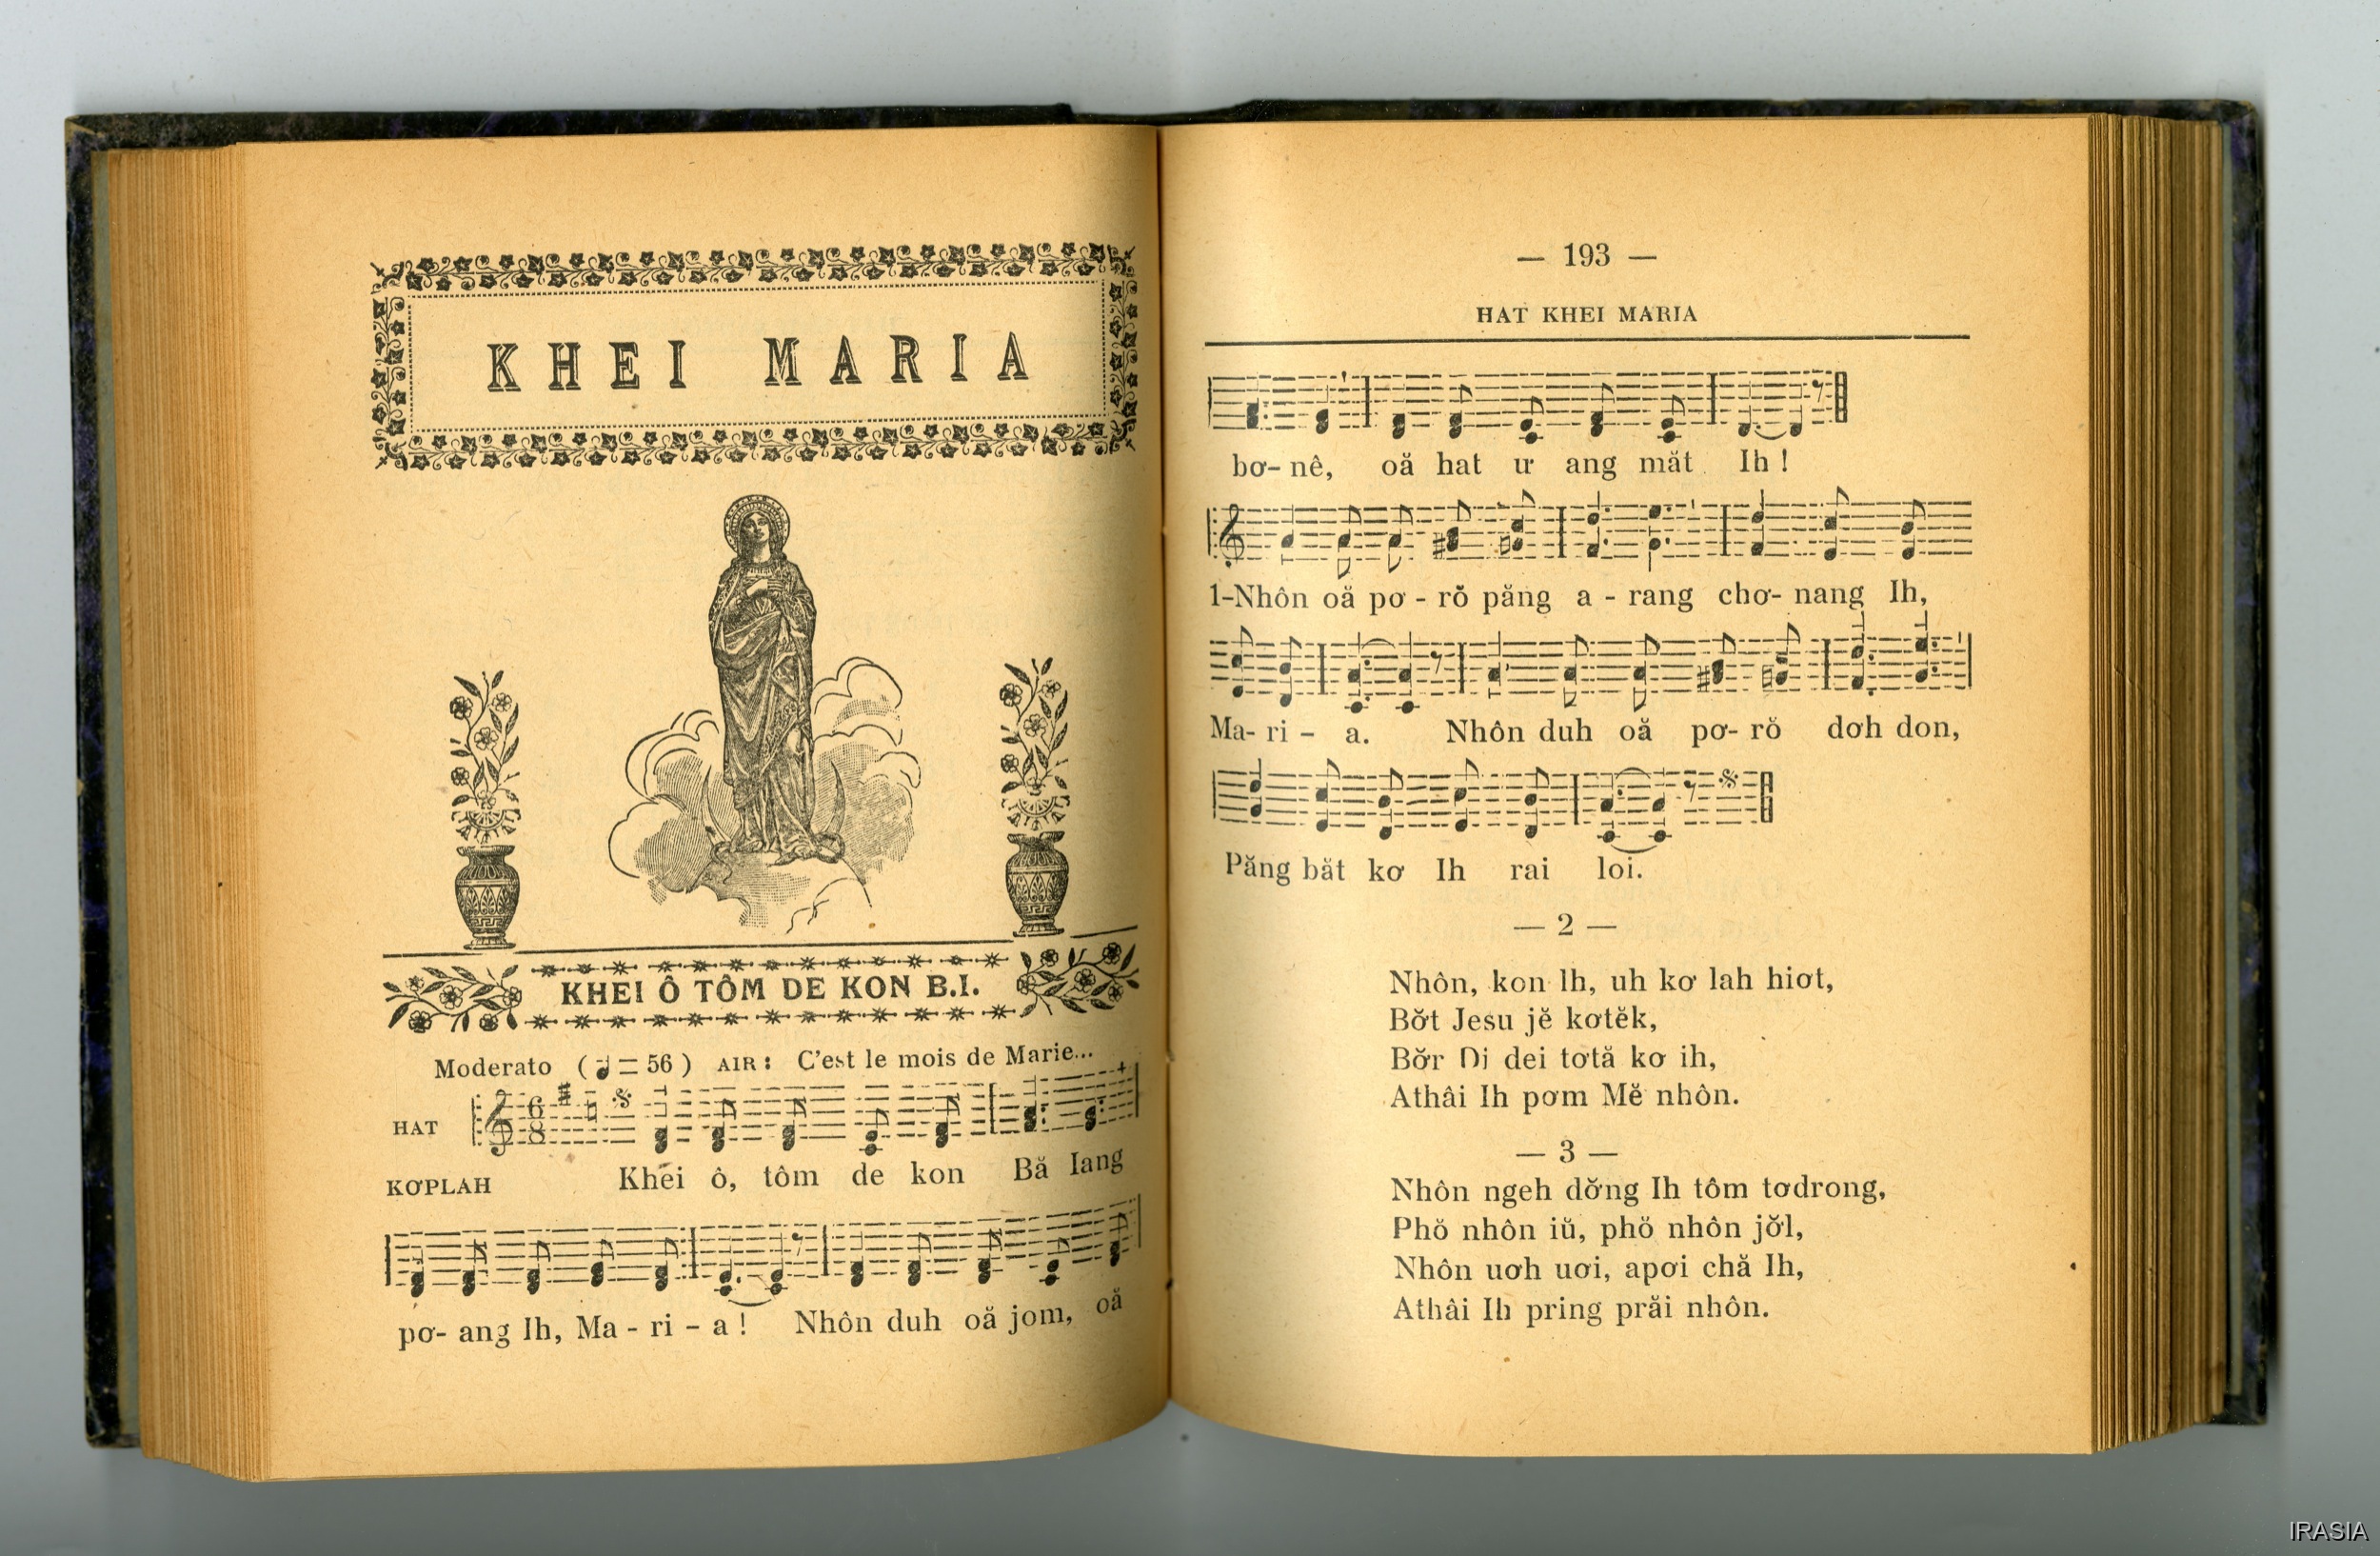 KHEI MARIA
KHEI Ô TÔM DE KON B.I.
Moderato (♩ = 56) AIR : C'est le mois de Marie...
HAT
KƠPLAH
Khei ô, tôm de kon Bă Iang
pơ- ang Ih, Ma - ri - a ! Nhôn duh oă jom, oă
— 193 —
HAT KHEI MARIA
bơ- nê, oă hat ư ang măt Ih !
1-Nhôn oă pơ - rŏ păng a - rang chơ- nang Ih,
Ma- ri - a. Nhôn duh oă pơ- rŏ dơh don,
Păng băt kơ Ih rai loi.
— 2 —
Nhôn, kon Ih, uh kơ lah hiơt,
Bơ̆t Jesu jĕ kơtĕk,
Bơ̆r Di dei tơtă kơ ih,
Athâi Ih pơm Mĕ nhôn.
— 3 —
Nhôn ngeh dơ̆ng Ih tôm tơdrong,
Phŏ nhôn iŭ, phŏ nhôn jơ̆l,
Nhôn uơh uơi, apơi chă Ih,
Athâi Ih pring prăi nhôn.
IRASIA